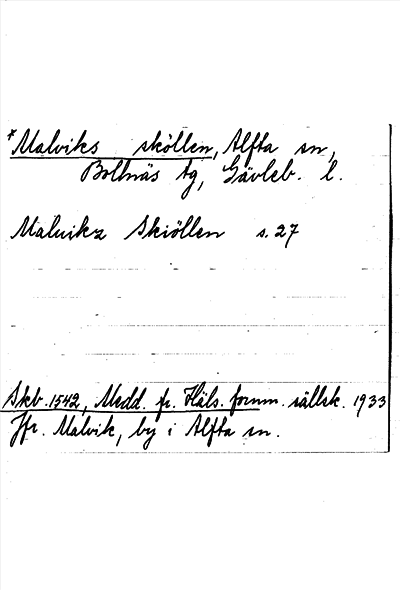 *Malviks sköllen, Alfta sn,
Bollnäs tg, Gävleb. l.
Maluikz Skiöllen s. 27
Skb. 1542, Medd. fr. Häls. fornm. sällsk. 1933
Jfr. Malvik, by i Alfta sn.